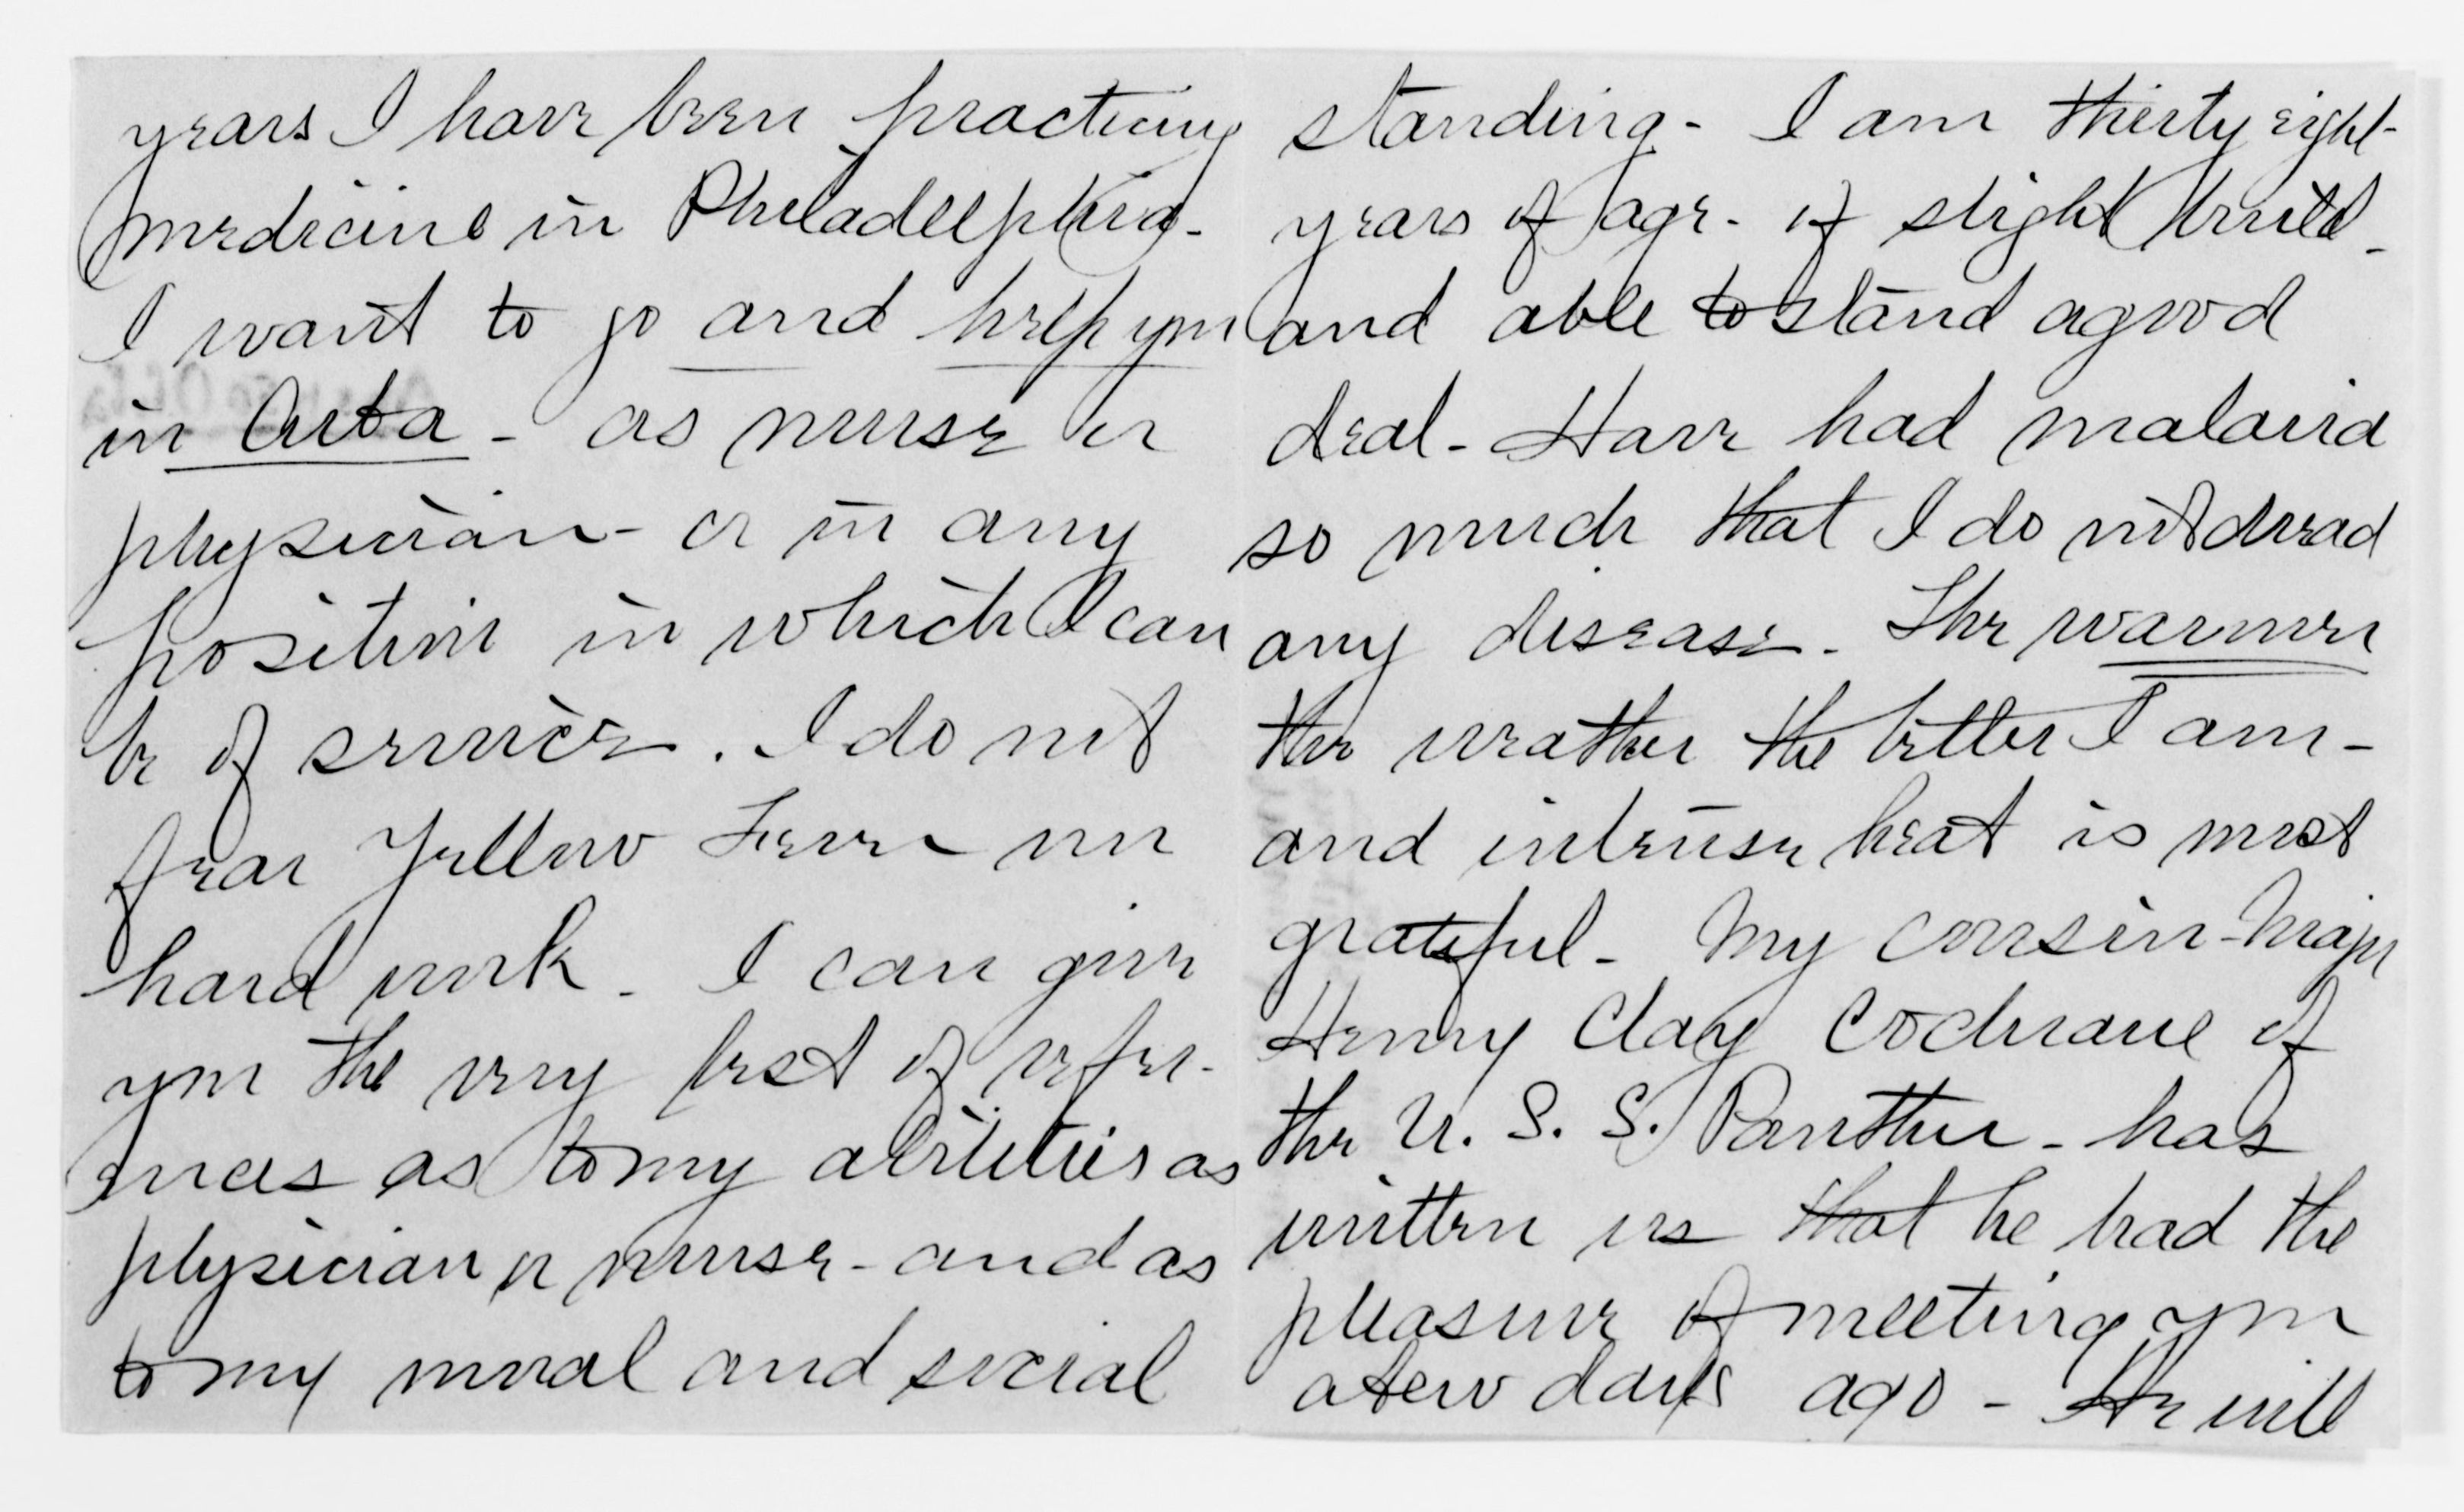 years I have been practicing
medicine in Philadelphia -
I want to go and help you
in Cuba - as nurse or
physician - or in any
position in which I can
be of service. I do not
fear Yellow Fever nor
hard work - I can give
you the very best of refer-
ences as to my abilities as
physician or nurse - and as
to my moral and social
standing - I am thirty eight -
years of age - of slight build -
and able to stand a good
deal - Have had malaria
so much that I do not dread
any disease - The warmer
the weather the better I am -
and intense heat is most
grateful - My cousin - Major
Henry Clay Cochrane of
the U. S. S. Panther - has
written us that he had the
pleasure of meeting you
a few days ago - He will